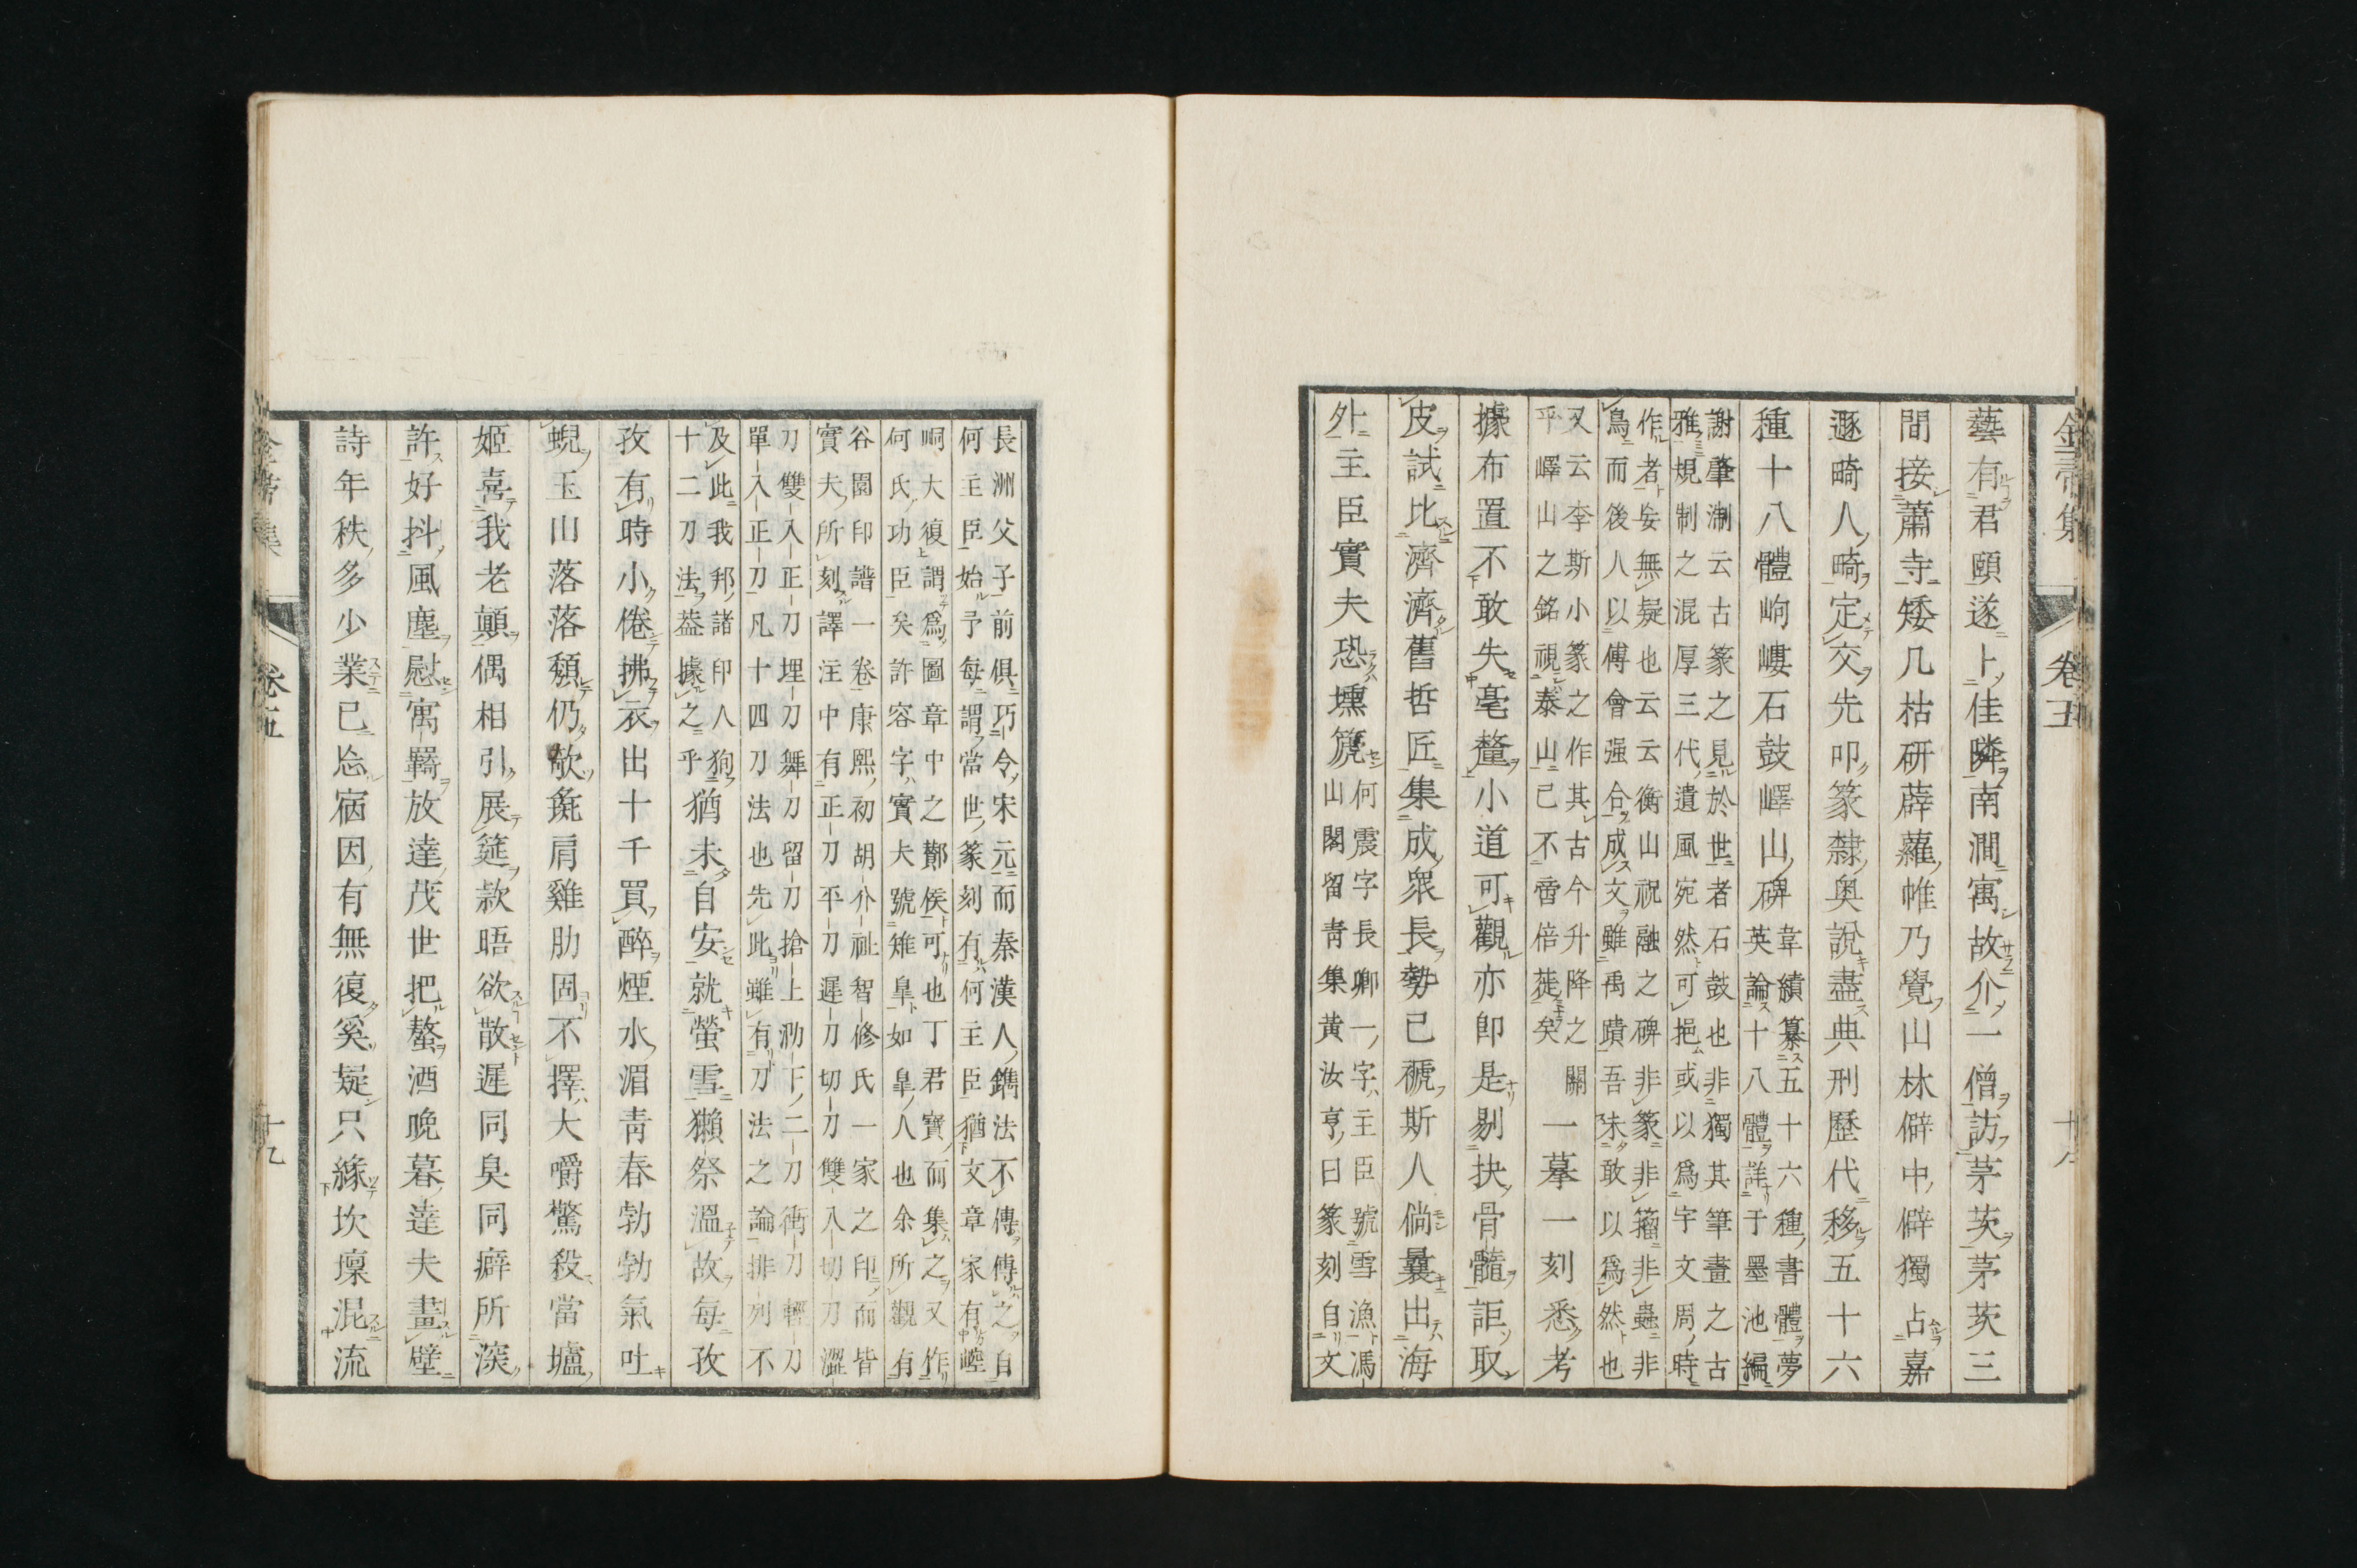 藝有君頤遂卜佳隣南澗寓故介一僧訪茅茨茅茨三
間接蕭寺矮几枯研薜蘿帷乃覺山林僻中僻獨占嘉
遯畸人畸定交先叩篆隸奥說盡典刑歷代移五十六
種十八體岣嶁石鼓嶧山碑
韋績纂五十六種書體夢
英論十八體詳于墨池編
謝肇淛云古篆之見於世者石鼓也非獨其筆畫之古
雅規制之混厚三代遺風宛然可挹或以爲宇文周時
作者妄無疑也云云衡山祝融之碑非篆非籀非蟲非
鳥而後人以傅會强合成文雖禹蹟吾未敢以爲然也
又云李斯小篆之作其古今升降之關
乎嶧山之銘視泰山已不啻倍蓰矣
一摹一刻悉考
據布置不敢失毫釐小道可觀亦卽是剔抉骨髓詎取
皮試比濟濟舊哲匠集成衆長勢已褫斯人倘曩出海
外主臣實夫恐壎篪
何震字長卿一字主臣號雪漁馮
山閣留青集黄汝亨曰篆刻自文
長洲父子前俱巧令宋元而秦漢人鐫法不傳傳之自
何主臣始予每謂當世篆刻有何主臣猶文章家有崆
峒大復謂爲圖章中之鄼侯可也丁君寶而集之又作
何氏功臣矣許容字實夫號雉皐如皐人也余所觀有
谷園印譜一卷康熙初胡介祉智修氏一家之印而皆
實夫所刻譯注中有正刀平刀遲刀切刀雙入切刀澀
刀雙入正刀埋刀舞刀留刀搶上泐下二刀衝刀輕刀
單入正刀凡十四刀法也先此雖有刀法之論排列不
及此我邦諸印人狥
十二刀法葢據之乎
猶未自安就螢雪獺祭溫故每孜
孜有時小倦拂衣出十千買醉煙水湄青春勃勃氣吐
蜺玉山落落頹仍欹彘肩雞肋固不擇大嚼驚殺當壚
姬喜我老顛偶相引展筵款晤欲散遲同臭同癖所深
許好抖風塵慰寓羇放達茂世把螯酒晩暮達夫畫壁
詩年秩多少業已忘宿因有無復奚疑只緣坎壈混流
卷五
十八
卷五
十九